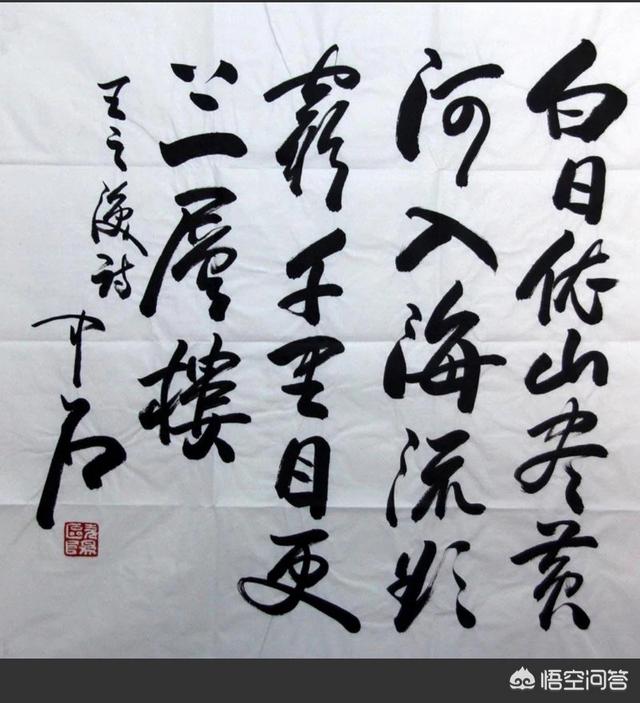 白日依山尽黄
河入海流欲
窮千里目更
上一層樓
王之渙诗
中石
悟空问答